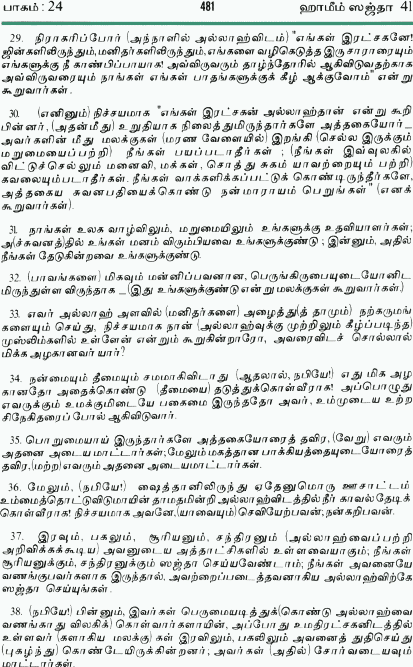 பாகம் : 24 481 ஹாமீம் ஸஜ்தா 41
29. நிராகரிப்போர் (அந்நாளில் அல்லாஹ்விடம்) "எங்கள் இரட்சகனே!
ஜின்களிலிருந்தும், மனிதர்களிலிருந்தும், எங்களை வழிகெடுத்த இருசாராரையும்
எங்களுக்கு நீ காண்பிப்பாயாக! அவ்விருவரும் தாழ்ந்தோரில் ஆகிவிடுவதற்காக
அவ்விருவரையும் நாங்கள் எங்கள் பாதங்களுக்குக் கீழ் ஆக்குவோம்" என்று
கூறுவார்கள்.
30. (எனினும்) நிச்சயமாக "எங்கள் இரட்சகன் அல்லாஹ்தான் என்று கூறி
பின்னர், (அதன்மீது) உறுதியாக நிலைத்துமிருந்தார்களே அத்தகையோர் _
அவர்களின் மீது மலக்குகள் (மரண வேளையில்) இறங்கி (செல்ல இருக்கும்
மறுமையைப்பற்றி) நீங்கள் பயப்படாதீர்கள் ; (நீங்கள் இவ்வுலகில்
விட்டுச்செல்லும் மனைவி, மக்கள், சொத்து சுகம் யாவற்றையும் பற்றி)
கவலையும்படாதீர்கள். நீங்கள் வாக்களிக்கப்பட்டுக் கொண்டிருந்தீர்களே,
அத்தகைய சுவனபதியைக்கொண்டு நன்மாராயம் பெறுங்கள்" (எனக்
கூறுவார்கள்).
31. நாங்கள் உலக வாழ்விலும், மறுமையிலும் உங்களுக்கு உதவியாளர்கள்;
அ(ச்சுவனத்)தில் உங்கள் மனம் விரும்பியவை உங்களுக்குண்டு ; இன்னும், அதில்
நீங்கள் தேடுகின்றவை உங்களுக்குண்டு.
32. (பாவங்களை) மிகவும் மன்னிப்பவனான, பெருங்கிருபையுடையோனிட
மிருந்துள்ள விருந்தாக _ (இது உங்களுக்குண்டு என்று மலக்குகள் கூறுவார்கள்.)
33. எவர் அல்லாஹ் அளவில் (மனிதர்களை) அழைத்து(த் தாமும்) நற்கருமங்
களையும் செய்து, நிச்சயமாக நான் (அல்லாஹ்வுக்கு முற்றிலும் கீழ்ப்படிந்த)
முஸ்லிம்களில் உள்ளேன் என்றும் கூறுகின்றாரோ, அவரைவிடச் சொல்லால்
மிக்க அழகானவர் யார்?
34. நன்மையும் தீமையும் சமமாகிவிடாது (ஆதலால், நபியே!) எது மிக அழ
கானதோ அதைக்கொண்டு (தீமையை) தடுத்துக்கொள்வீராக! அப்பொழுது
எவருக்கும் உமக்குமிடையே பகைமை இருந்ததோ அவர், உம்முடைய உற்ற
சிநேகிதரைப்போல் ஆகிவிடுவார்.
35. பொறுமையாய் இருந்தார்களே அத்தகையோரைத் தவிர, (வேறு) எவரும்
அதனை அடையமாட்டார்கள்; மேலும் மகத்தான பாக்கியத்தையுடையோரைத்
தவிர, (மற்ற) எவரும் அதனை அடையமாட்டார்கள்.
36. மேலும், (நபியே!) ஷைத்தானிலிருந்து ஏதேனுமொரு ஊசாட்டம்
உம்மைத்தொட்டுவிடுமாயின் தாமதமின்றி அல்லாஹ்விடத்தில் நீர் காவல்தேடிக்
கொள்வீராக! நிச்சயமாக அவனே, (யாவையும்) செவியேற்பவன்; நன்கறிபவன்.
37. இரவும், பகலும், சூரியனும், சந்திரனும் (அல்லாஹ்வைப்பற்றி
அறிவிக்கக்கூடிய) அவனுடைய அத்தாட்சிகளில் உள்ளவையாகும்; நீங்கள்
சூரியனுக்கும், சந்திரனுக்கும் ஸஜ்தா செய்யவேண்டாம்; நீங்கள் அவனையே
வணங்குபவர்களாக இருந்தால், அவற்றைப்படைத்தவனாகிய அல்லாஹ்விற்கே
ஸஜ்தா செய்யுங்கள்.
38. (நபியே!) பின்னும், இவர்கள் பெருமையடித்துக்(கொண்டு அல்லாஹ்வை
வணங்காது விலகிக்) கொள்வார்களாயின், அப்போது உமதிரட்சகனிடத்தில்
உள்ளவர் (களாகிய மலக்கு) கள் இரவிலும், பகலிலும் அவனைத் துதிசெய்து
(புகழ்ந்து) கொண்டேயிருக்கின்றனர்; அவர்கள் (அதில்) சோர்வடையவும்
மாட்டார்கள்.